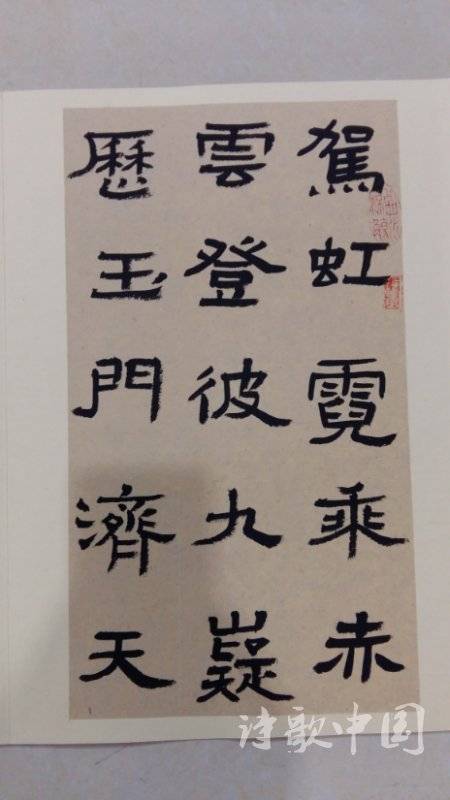 駕虹霓乘赤
雲登彼九嶷
歷玉門濟天
诗歌中国